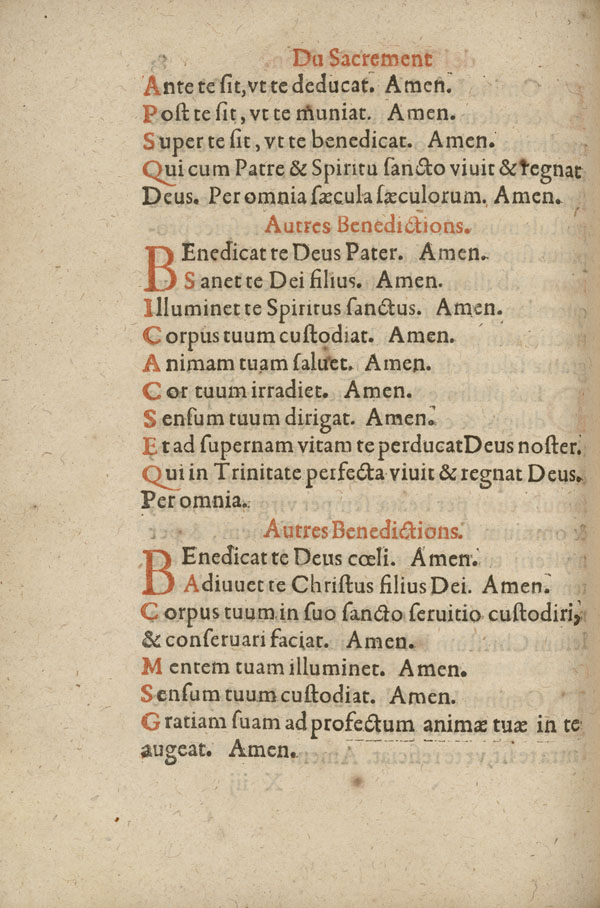 Du Sacrement
Ante te sit, vt te deducat. Amen.
Post te sit, vt te muniat. Amen.
Super te sit, vt te benedicat. Amen.
Qui cum Patre & Spiritu sancto viuit & regnat
Deus. Per omnia sæcula sæculorum. Amen.
Autres Benedictions.
BEnedicat te Deus Pater. Amen.
Sanet te Dei filius. Amen.
Illuminet te Spiritus sanctus. Amen.
Corpus tuum custodiat. Amen.
Animam tuam saluet. Amen.
Cor tuum irradiet. Amen.
Sensum tuum dirigat. Amen.
Et ad supernam vitam te perducat Deus noster.
Qui in Trinitate perfecta viuit & regnat Deus.
Per omnia.
Autres Benedictions.
BEnedicat te Deus cœli. Amen.
Adiuuet te Christus filius Dei. Amen.
Corpus tuum in suo sancto seruitio custodiri,
& conseruari faciat. Amen.
Mentem tuam illuminet. Amen.
Sensum tuum custodiat. Amen.
Gratiam suam ad profectum animæ tuæ in te
augeat. Amen.